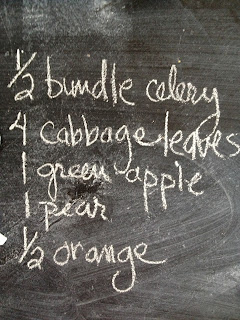 1/2 bundle celery
4 cabbage leaves
1 green apple
1 pear
1/2 orange